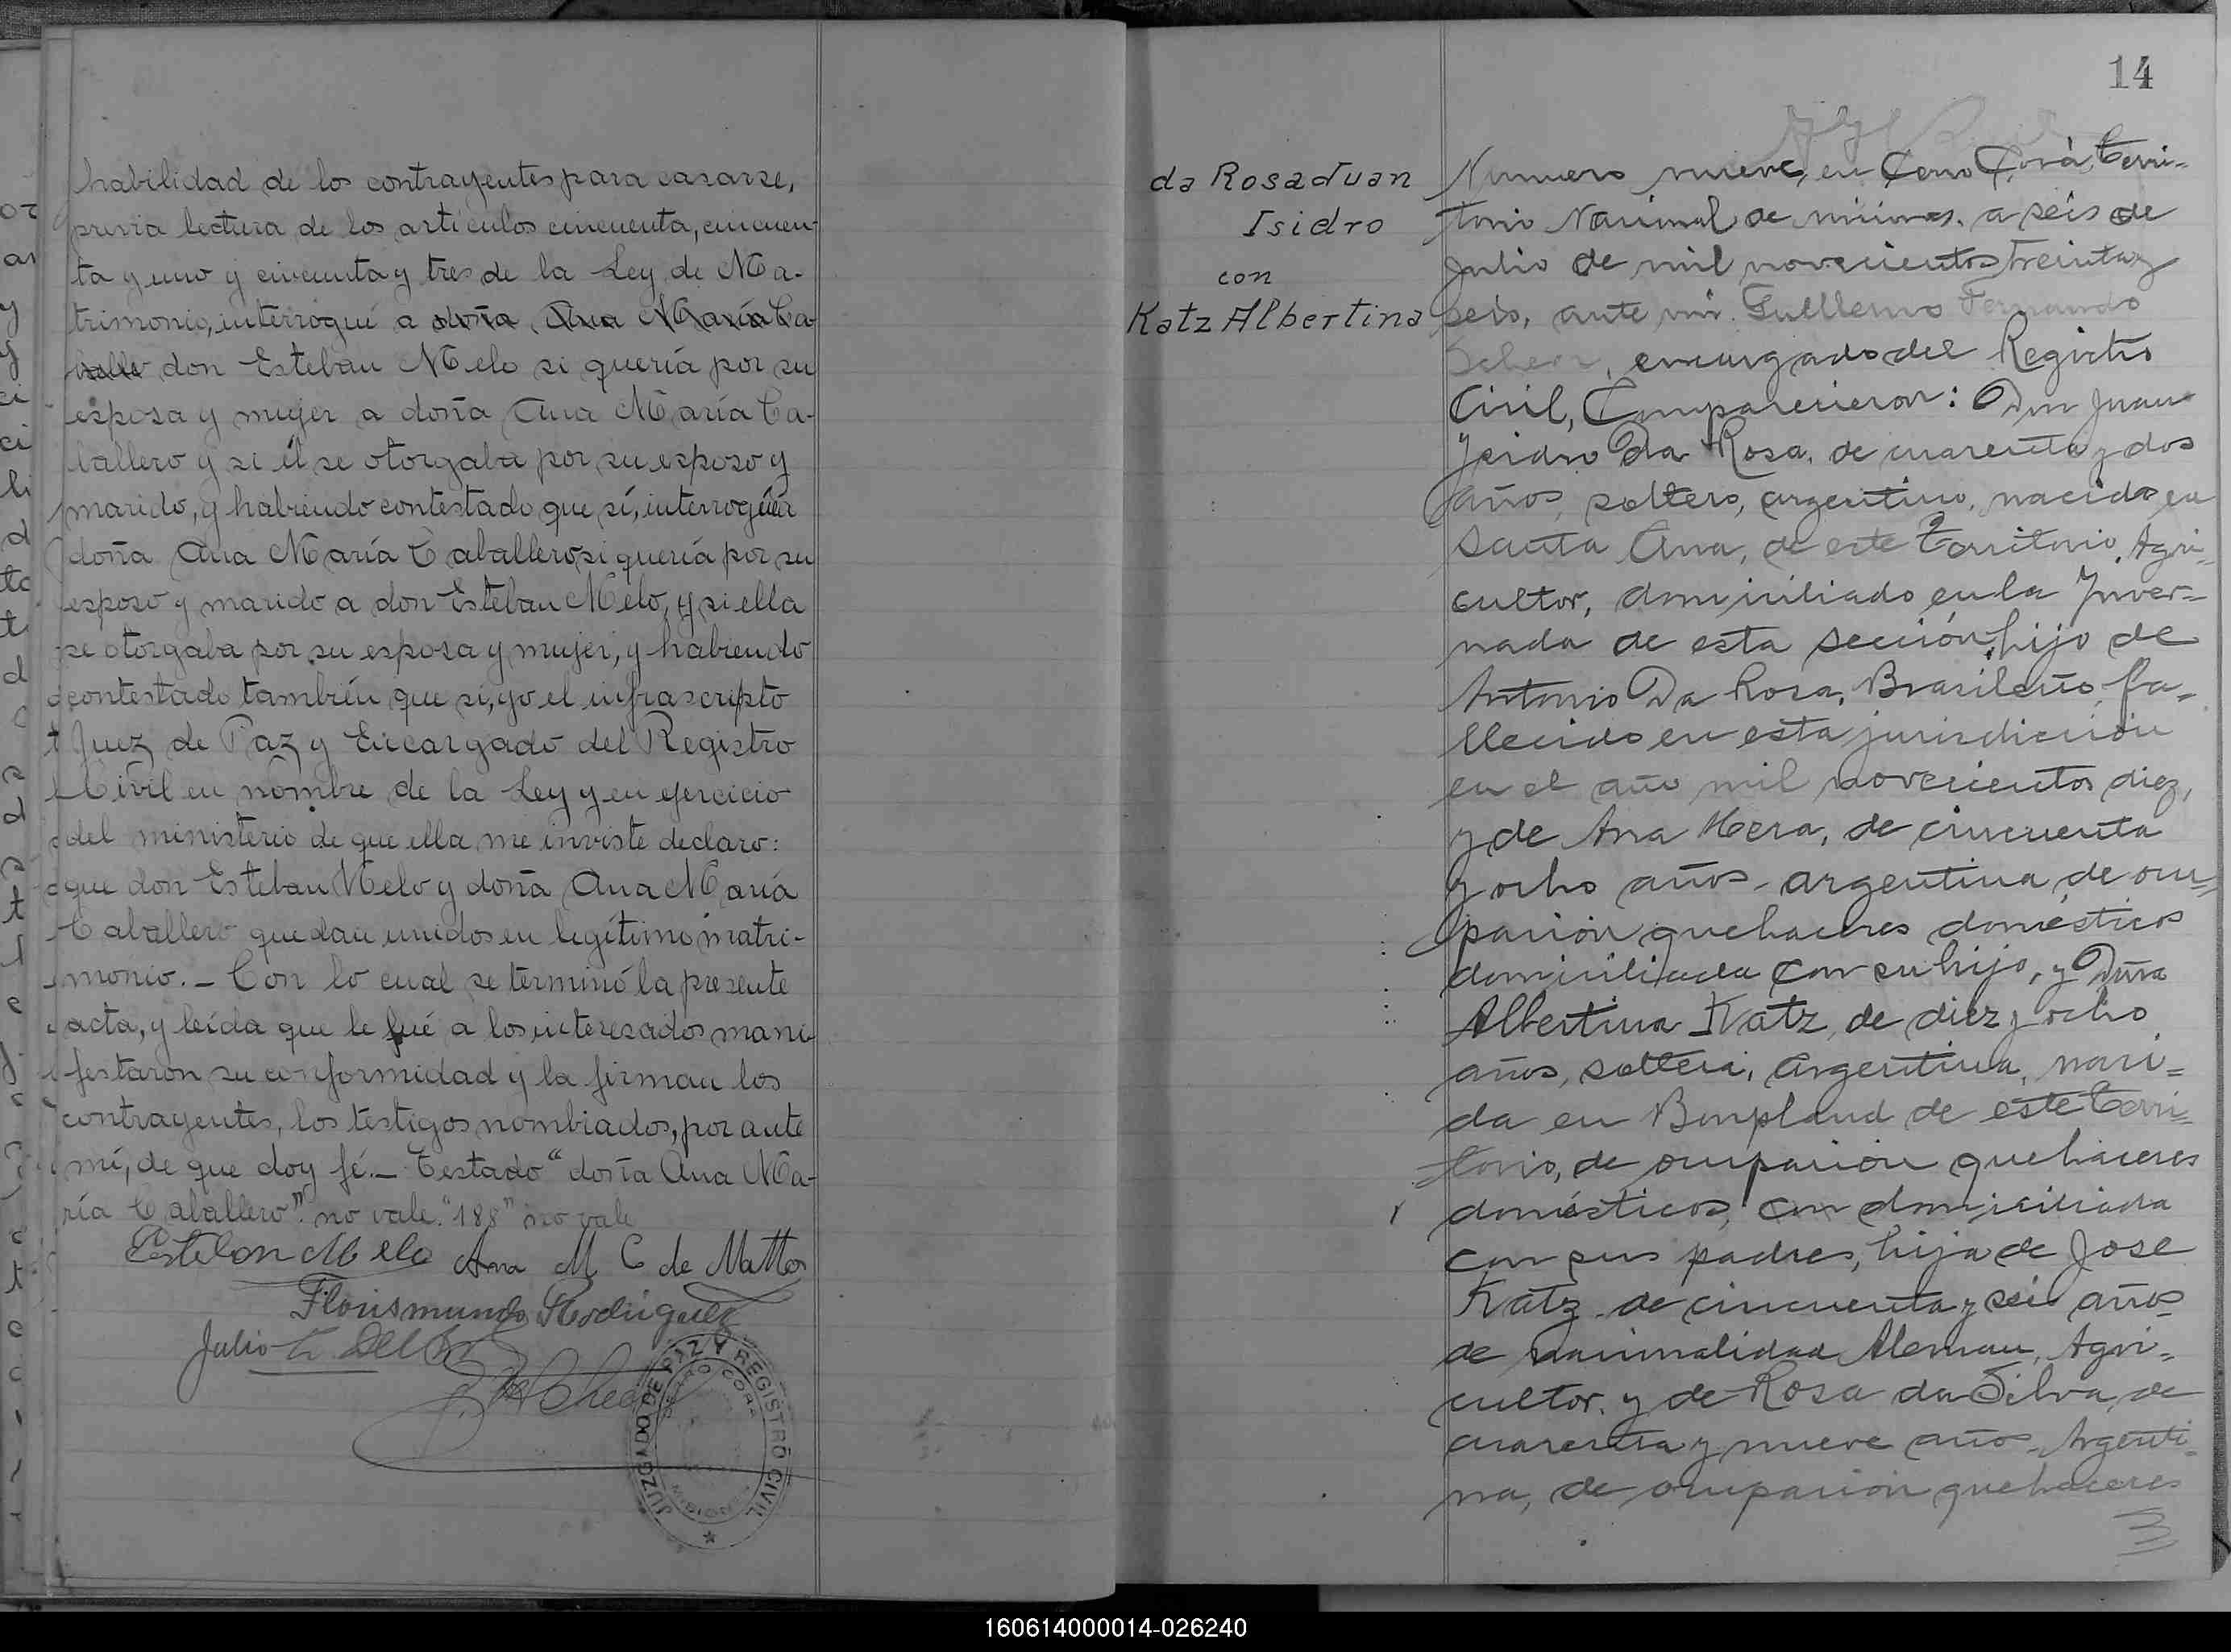 habilidad de los contrayentes para casarse,
previa lectura de los artículos cincuenta, cincuen-
ta y uno y cincuenta y tres de la Ley de Ma-
trimonio, interrogué a doña Ana María Ca-
ballero don Esteban Melo si quería por su
esposa y mujer a doña Ana María Ca-
ballero y si él se otorgaba por su esposo y
marido, y habiendo contestado que sí, interrogué a
doña Ana María Caballero si quería por su
esposo y marido a don Esteban Melo, y si ella
se otorgaba por su esposa y mujer, y habiendo
contestado también que sí, yo el infrascripto
Juez de Paz y Encargado del Registro
Civil en nombre de la Ley y en ejercicio
del ministerio de que ella me inviste declaro:
que don Esteban Melo y doña Ana María
Caballero quedan unidos en legítimo matri-
monio. - Con lo cual se terminó la presente
acta, y leída que le fué a los interesados mani-
festaron su conformidad y la firman los
contrayentes, los testigos nombrados, por ante
mí, de que doy fé. - Testado "doña Ana Ma-
ría Caballero" no vale. "188" no vale
Esteban Melo Ana M C de Mattos
Florismundo Rodriguez
Julio
JUZGADO DE PAZ Y REGISTRO CIVIL
CERRO CORA
MISIONES
14
da Rosa Juan
Isidro
con
Katz Albertina
Numero nueve, en Cerro Corá, Terri-
torio Nacional de misiones. a seis de
Julio de mil novecientos treinta y
seis, ante mi. Guillermo Fernando
encargado del Registro
Civil, Comparecieron: Don Juan
Isidro Da Rosa, de cuarenta y dos
años, soltero, argentino, nacido en
Santa Ana, de este Territorio, Agri-
cultor, domiciliado en la Inver-
nada de esta sección, hijo de
Antonio Da Rosa, Brasileño, fa-
llecido en esta jurisdicción
en el año mil novecientos diez,
y de Ana de cincuenta
y ocho años - argentina, de ocu-
pación quehaceres domésticos
domiciliada con su hijo, y Doña
Albertina Katz, de diez y ocho
años, soltera, argentina, naci-
da en Bonpland de este Terri-
torio, de ocupación quehaceres
domésticos, con domiciliada
con sus padres, hija de Jose
Katz de cincuenta y seis años
de nacionalidad Aleman, Agri-
cultor. y de Rosa da Silva, de
cuarenta y nueve años - Argenti-
na, de ocupación quehaceres
160614000014-026240